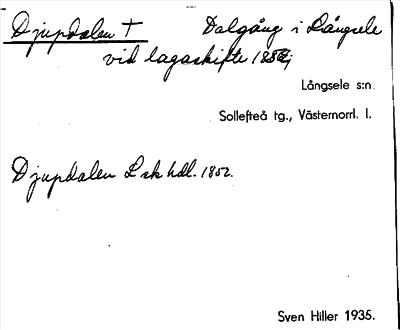 Djupdalen † Dalgång i Långsele
vid lagaskifte
Långsele s:n.
Sollefteå tg., Västernorrl. l.
Djupdalen L sk hdl. 1852.
Sven Hiller 1935.